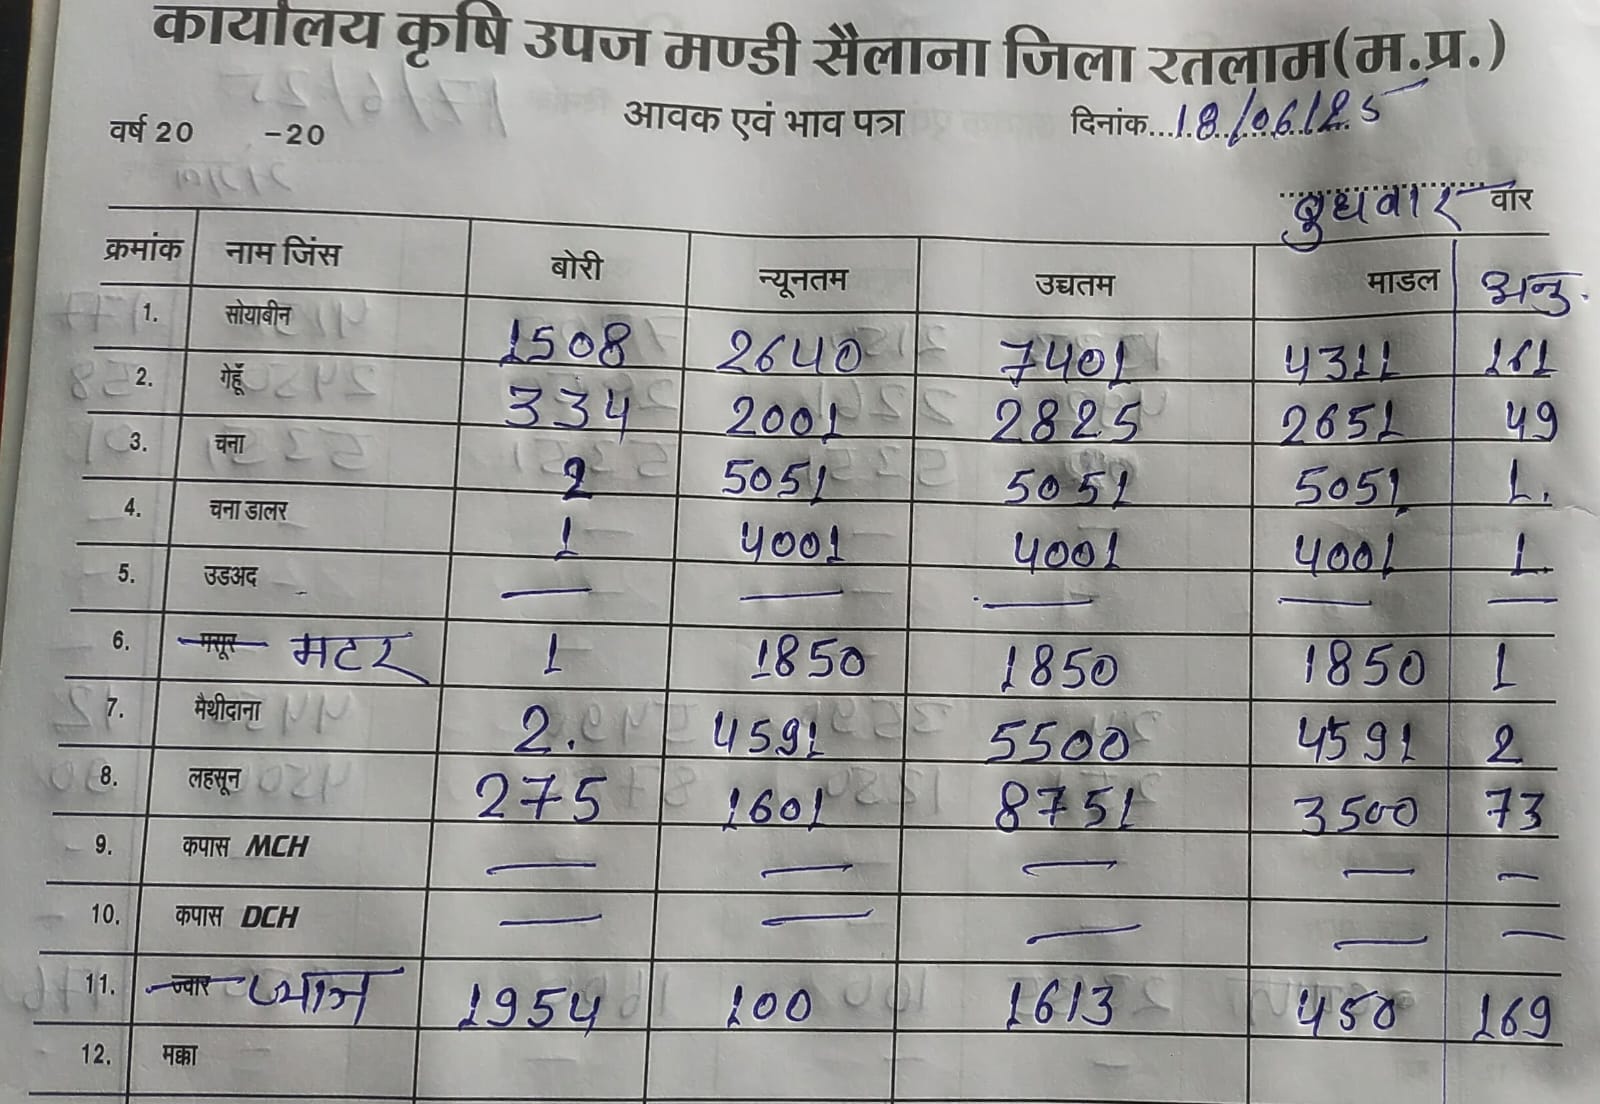 कार्यालय कृषि उपज मण्डी सैलाना जिला रतलाम(म.प्र.)
आवक एवं भाव पत्र
वर्ष 20 -20 दिनांक...18/06/25
बुधवार वार
क्रमांक नाम जिंस बोरी न्यूनतम उच्चतम माडल अनु.
1. सोयाबीन 1508 2640 7401 4311 161
2. गेहूँ 334 2001 2825 2651 49
3. चना 2 5051 5051 5051 1.
4. चना डालर 1 4001 4001 4001 1.
5. उडअद — — — — —
6. मसूर मटर 1 1850 1850 1850 1
7. मैथीदाना 2. 4591 5500 4591 2
8. लहसून 275 1601 8751 3500 73
9. कपास MCH — — — — —
10. कपास DCH — — — — —
11. ज्वार प्याज 1954 100 1613 450 169
12. मक्का